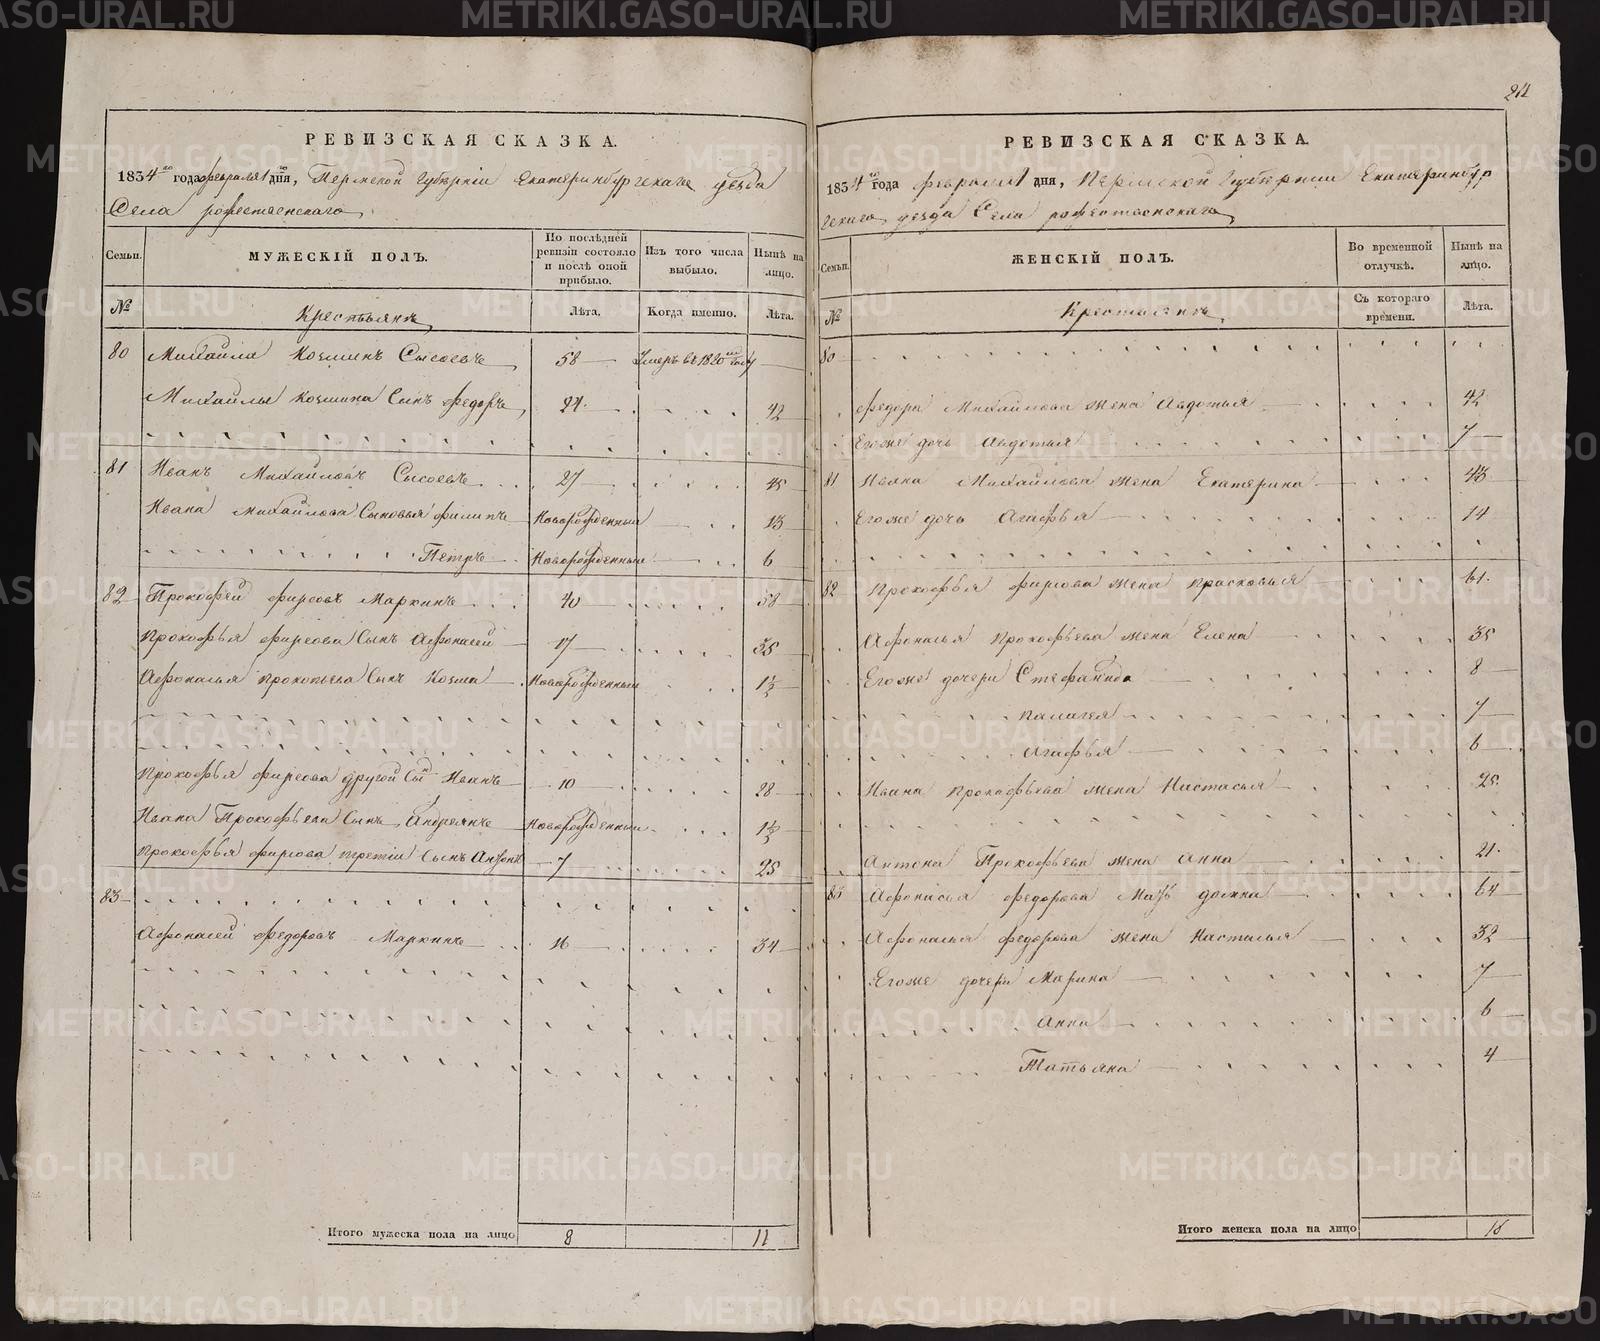 24
РЕВИЗСКАЯ СКАЗКА.
1834го года февраля 1 дня, Пермской Губернiи Екатеринбургскаго уезда
Села рождественскаго
Семьи. МУЖЕСКIЙ ПОЛЪ. По послѣдней ревизiи состояло и послѣ оной прибыло. Изъ того числа выбыло. Нынѣ на лицо.
№ Крестьянъ Лѣта. Когда именно. Лѣта.
80 Михайла Козминъ Сысоевъ 58 Умеръ въ 1820м году
Михайлы Козмина Сынъ Федоръ 24 42
81 Иванъ Михайловъ Сысоевъ 27 45
Ивана Михайлова Сыновья Филипъ Новорожденный 13
Петръ Новорожденный 6
82 Прокофей Фирсовъ Маркинъ 40 58
Прокофья Фирсова Сынъ Афонасей 17 35
Афонасья Прокопьева Сынъ Козма Новорожденный 1½
Прокофья Фирсова другой Сынъ Иванъ 10 28
Ивана Прокофьева Сынъ Андреянъ Новорожденный 1½
Прокофья Фирсова третiй Сынъ Антонъ 7 25
83
Афонасей Федоровъ Маркинъ 16 34
Итого мужеска пола на лицо 8 11
РЕВИЗСКАЯ СКАЗКА.
1834го года февраля 1 дня, Пермской Губернiи Екатеринбур
гскаго уезда Села рождественскаго
Семьи. ЖЕНСКIЙ ПОЛЪ. Во временной отлучкѣ. Нынѣ на лицо.
№ Крестьянъ Съ котораго времени. Лѣта.
80
Федора Михайлова жена Авдотья 42
Егоже дочь Авдотья 7
81 Ивана Михайлова жена Екатерина 43
Егоже дочь Агафья 14
82 Прокофья Фирсова жена Прасковья 61
Афонасья Прокофьева жена Елена 35
Егоже дочери Стефанида 8
Палагея 7
Агафья 6
Ивана Прокофьева жена Настасья 25
Антона Прокофьева жена Анна 21
83 Афонасья Федорова Мать домна 64
Афонасья Федорова жена Настасья 32
Егоже дочери Марина 7
Анна 6
Татьяна 4
Итого женска пола на лицо 16
METRIKI.GASO-URAL.RU